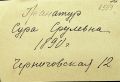 1989
Гранатур
Сура Срулевна
1890 г.
Черниговская 12